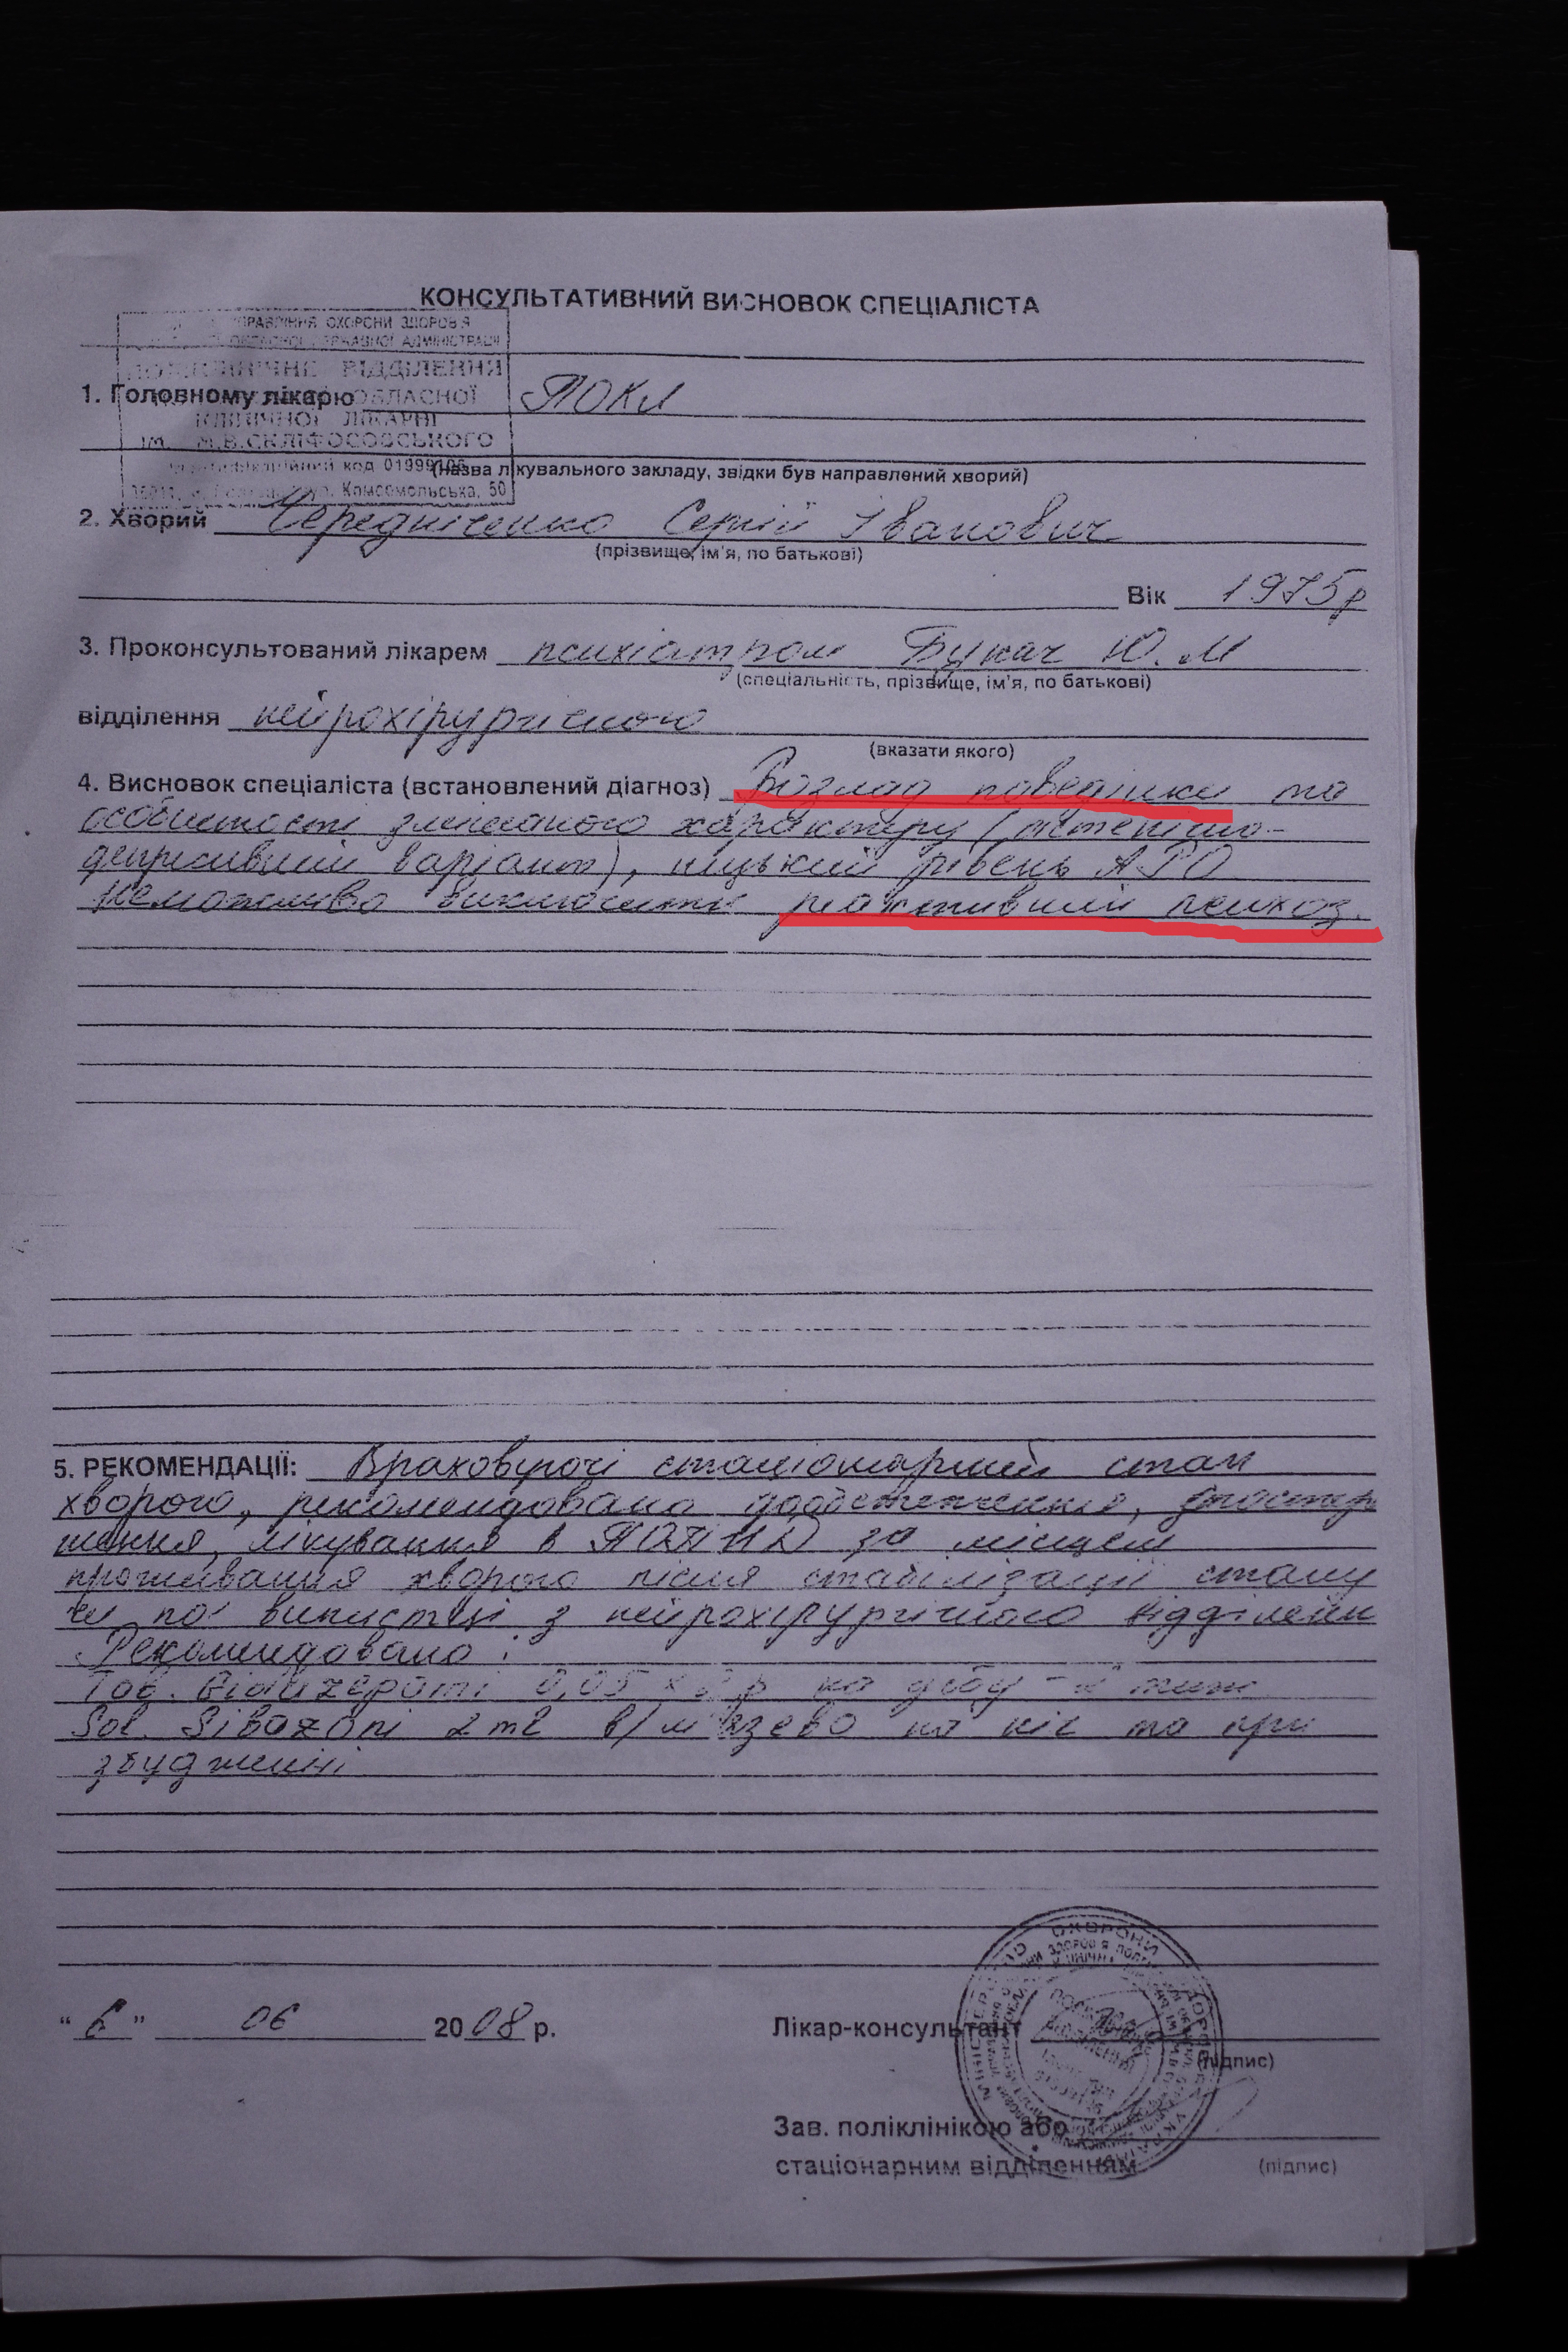 КОНСУЛЬТАТИВНИЙ ВИСНОВОК СПЕЦІАЛІСТА
УПРАВЛІННЯ ОХОРОНИ ЗДОРОВ'Я
ОБЛАСНОЇ ДЕРЖАВНОЇ АДМІНІСТРАЦІЇ
ПОЛІКЛІНІЧНЕ ВІДДІЛЕННЯ
ОБЛАСНОЇ
КЛІНІЧНОЇ ЛІКАРНІ
ім. М.В.СКЛІФОСОВСЬКОГО
Ідентифікаційний код 01999106
вул. Комсомольська, 50
1. Головному лікарю ПОКЛ
(назва лікувального закладу, звідки був направлений хворий)
2. Хворий Чередніченко Сергій Іванович
(прізвище, ім'я, по батькові)
Вік 1975р
3. Проконсультований лікарем психіатром Букач Ю. М
(спеціальність, прізвище, ім'я, по батькові)
відділення нейрохірургічного
(вказати якого)
4. Висновок спеціаліста (встановлений діагноз) Розлад поведінки та
особистості змішаного характеру (астенічно-
депресивний варіант), низький рівень
Неможливо виключити реактивний психоз.
5. РЕКОМЕНДАЦІЇ: Враховуючі стаціонарний стан
хворого, рекомендовано дообстеження, спостере
ження, лікування в за місцем
проживання хворого після стабілізації стану
чи по випистці з нейрохірургічного відділенн
Рекомендовано:
Таб. 0,05 х р на добу -
Sol. Sibazoni 2 ml в/м'язево на ніч та при
збудженні
"6" 06 2008 р.
Лікар-консультант
(підпис)
Зав. поліклінікою або
стаціонарним відділенням
(підпис)